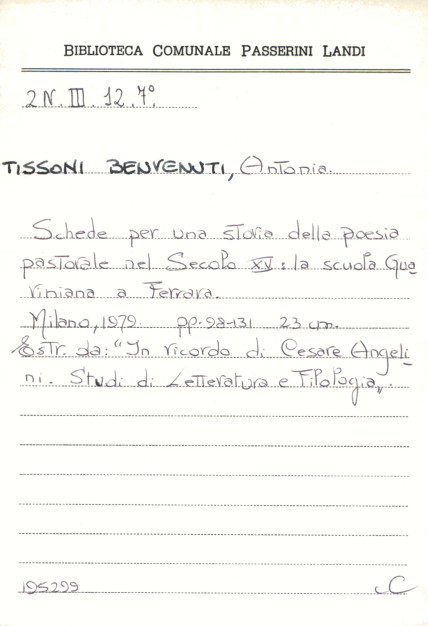 BIBLIOTECA COMUNALE PASSERINI LANDI
2N. III. 12. 7°.
TISSONI BENVENUTI, Antonia.
Schede per una storia della poesia
pastorale nel Secolo XV: la scuola Gua
riniana a Ferrara.
Milano, 1979. pp. 98-131 23 cm.
Estr. da: "In ricordo di Cesare Angeli
ni. Studi di Letteratura e Filologia„.
195299 C